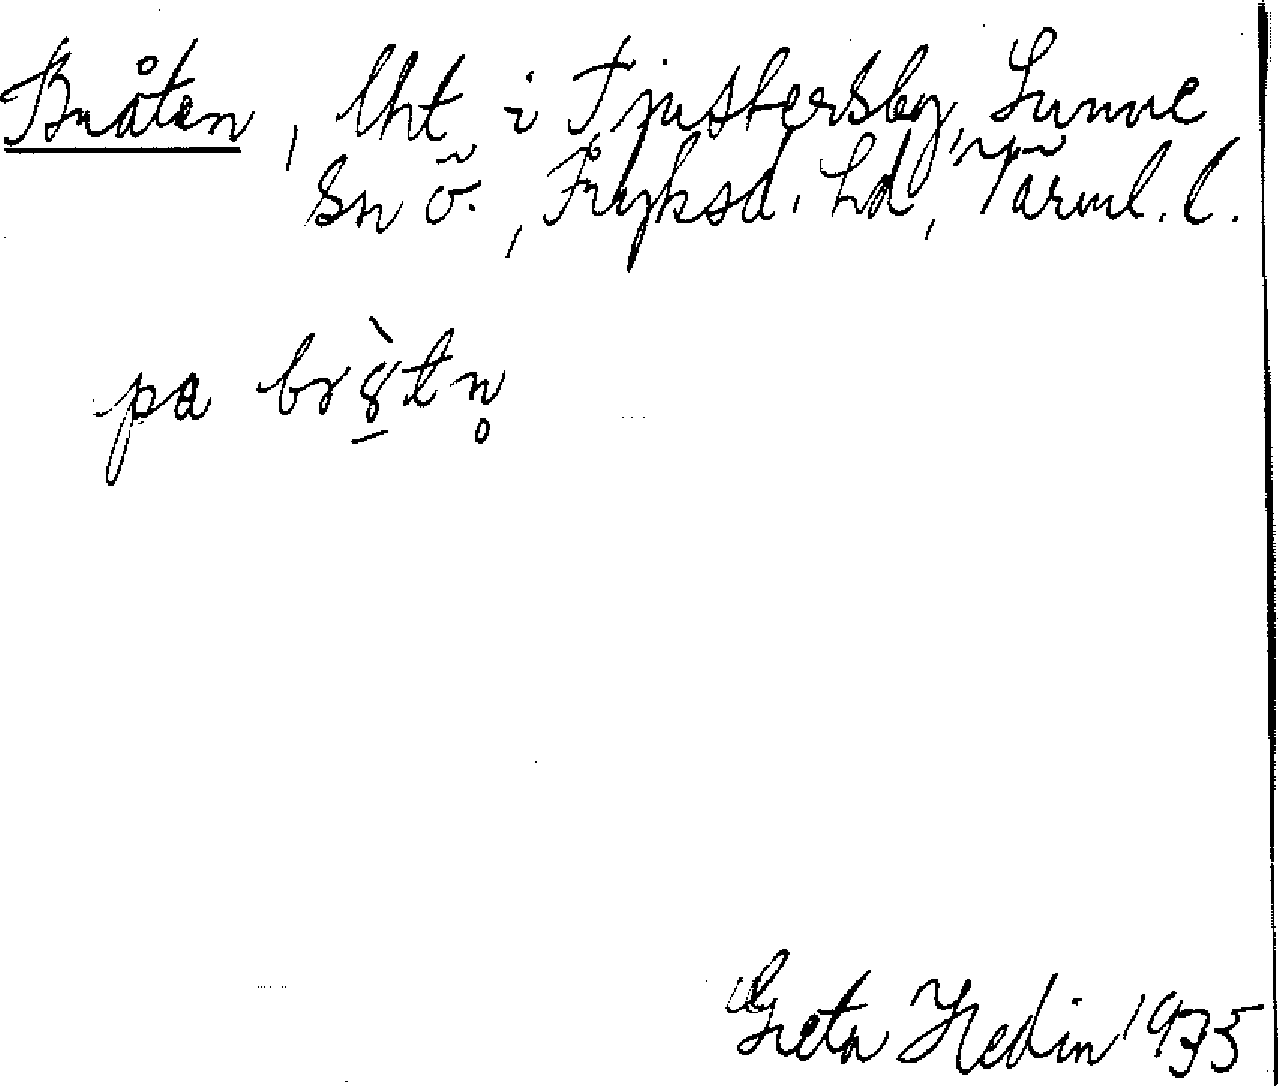 Bråten, lht i Tjustersby, Sunne
sn ö., Fryksd. hd, Värml. l.
pa br8̠̀tn̥
Greta Hedin 1935